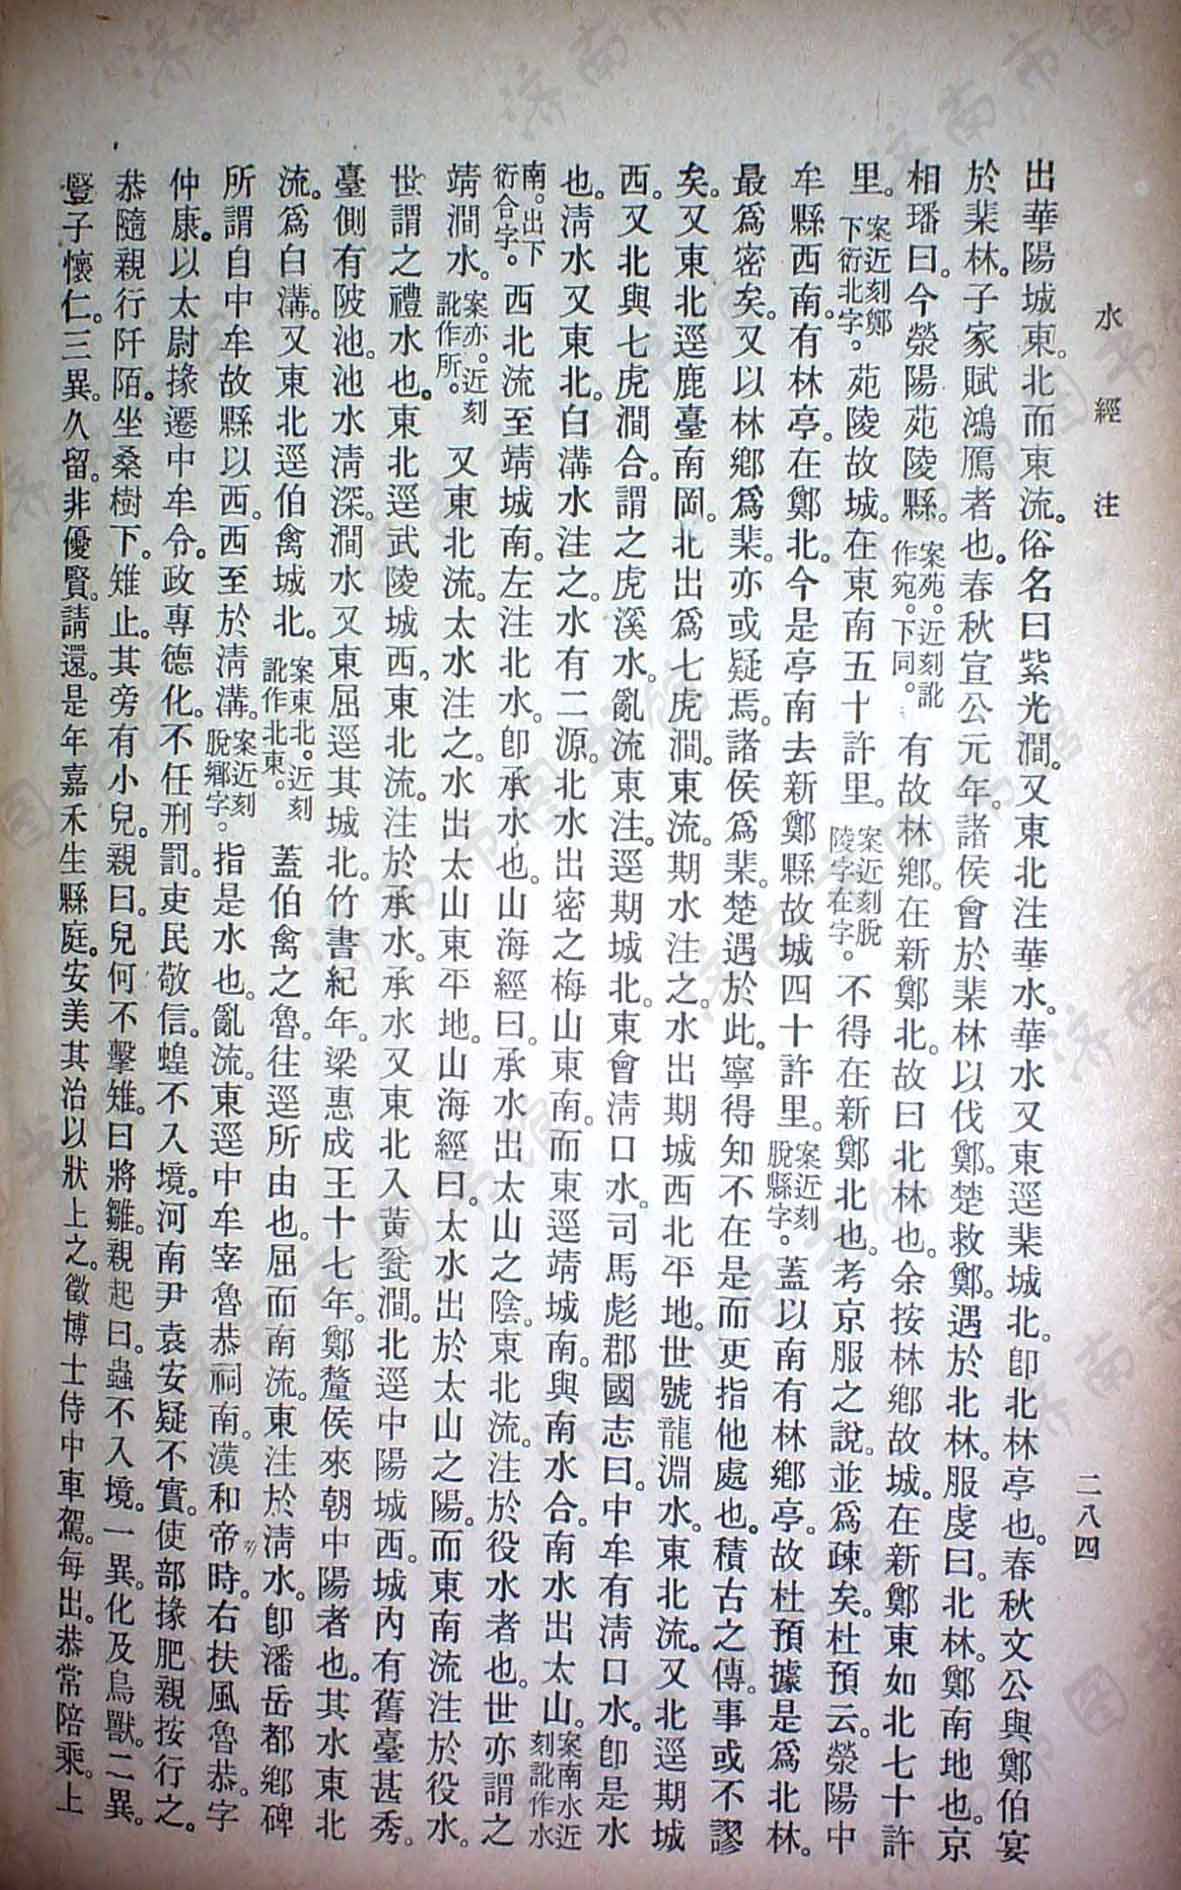 水經注
二八四
出華陽城東。北而東流。俗名曰紫光澗。又東北注華水。華水又東逕棐城北。卽北林亭也。春秋文公與鄭伯宴
於棐林。子家賦鴻鴈者也。春秋宣公元年。諸侯會於棐林以伐鄭。楚救鄭。遇於北林。服虔曰。北林。鄭南地也。京
相璠曰。今滎陽苑陵縣。案苑。近刻訛作宛。下同。有故林鄉。在新鄭北。故曰北林也。余按林鄉故城。在新鄭東如北七十許
里。案近刻鄭下衍北字。苑陵故城。在東南五十許里。案近刻脫陵字在字。不得在新鄭北也。考京服之說。並爲疎矣。杜預云。滎陽中
牟縣西南。有林亭。在鄭北。今是亭南去新鄭縣故城四十許里。案近刻脫縣字。蓋以南有林鄉亭。故杜預據是爲北林。
最爲密矣。又以林鄉爲棐。亦或疑焉。諸侯爲棐。楚遇於此。寧得知不在是而更指他處也。積古之傳。事或不謬
矣。又東北逕鹿臺南岡。北出爲七虎澗。東流。期水注之。水出期城西北平地。世號龍淵水。東北流。又北逕期城
西。又北與七虎澗合。謂之虎溪水。亂流東注。逕期城北。東會淸口水。司馬彪郡國志曰。中牟有淸口水。卽是水
也。淸水又東北。白溝水注之。水有二源。北水出密之梅山東南。而東逕靖城南。與南水合。南水出太山。案南水近刻訛作水
南。出下衍合字。西北流至靖城南。左注北水。卽承水也。山海經曰。承水出太山之陰。東北流。注於役水者也。世亦謂之
靖澗水。案亦。近刻訛作所。又東北流。太水注之。水出太山東平地。山海經曰。太水出於太山之陽。而東南流注於役水。
世謂之禮水也。東北逕武陵城西。東北流。注於承水。承水又東北入黃瓫澗。北逕中陽城西。城內有舊臺甚秀。
臺側有陂池。池水淸深。澗水又東屈逕其城北。竹書紀年。梁惠成王十七年。鄭釐侯來朝中陽者也。其水東北
流。爲白溝。又東北逕伯禽城北。案東北。近刻訛作北東。蓋伯禽之魯。往逕所由也。屈而南流。東注於淸水。卽潘岳都鄉碑
所謂自中牟故縣以西。西至於淸溝。案近刻脫鄉字。指是水也。亂流。東逕中牟宰魯恭祠南。漢和帝時。右扶風魯恭。字
仲康。以太尉掾遷中牟令。政專德化。不任刑罰。吏民敬信。蝗不入境。河南尹袁安疑不實。使部掾肥親按行之。
恭隨親行阡陌。坐桑樹下。雉止。其旁有小兒。親曰。兒何不擊雉。曰將雛。親起曰。蟲不入境。一異。化及鳥獸。二異。
豎子懷仁。三異。久留。非優賢。請還。是年嘉禾生縣庭。安美其治以狀上之。徵博士侍中車駕。每出。恭常陪乘。上